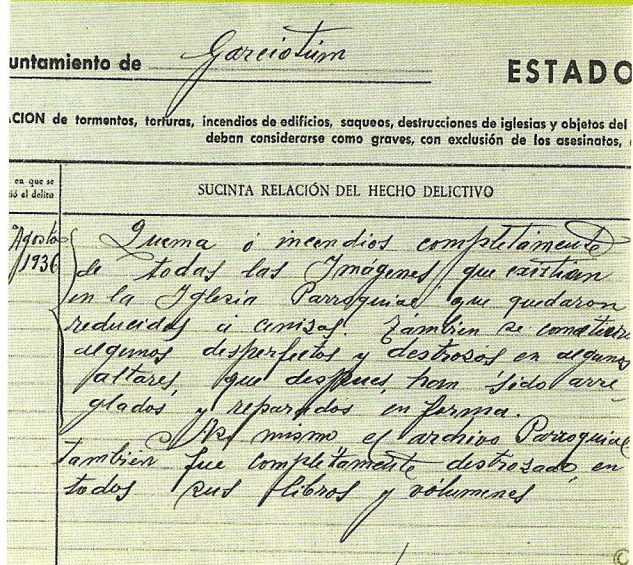 untamiento de Garciotúm
ESTADO
ACION de tormentos, torturas, incendios de edificios, saqueos, destrucciones de iglesias y objetos del
deban considerarse como graves, con exclusión de los asesinatos,
en que se
ió el delito
SUCINTA RELACIÓN DEL HECHO DELICTIVO
Agosto
1936
Quema ó incendios completamente
de todas las Imágenes que existian
en la Iglesia Parroquial que quedaron
reducidas á cenizas. Tambien se cometiero
algunos desperfectos y destrosos en alguno
altares, que despues han sido arre
glados y reparados en forma.
Asi mismo el archivo Parroquial
tambien fue completamente destrosado en
todos sus libros y vólumenes
©